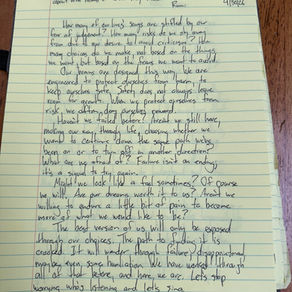 How many of our lives' songs are stifled by our
fear of judgement? How many risks do we shy away
from due to our desire to avoid criticism? How
many choices do we make not based on the things
we want, but based on the things we want to avoid.
Our brains are designed this way. We are
engineered to protect ourselves from pain, to
keep ourselves safe. Safety does not always leave
room for growth. When we protect ourselves from
risk, we often deny ourselves
Haven't we failed before? Aren't we still here,
making our way through life, choosing whether we
want to continue down the same path we've
been on or to try going in another direction?
What are we afraid of? Failure isn't an ending,
it's a signal to try again.
Might we look like a fool sometimes? Of course
we will. Are our dreams worth it to us? Aren't we
willing to endure a little bit of pain to become
more of what we would like to be?
The best version of us will only be exposed
through our choices. The path to finding it is
crooked. It will wander through failure, disappointment,
maybe even some humiliation. We have worked through
all of that before, and here we are. Let's stop
worrying who's listening and let's sing.